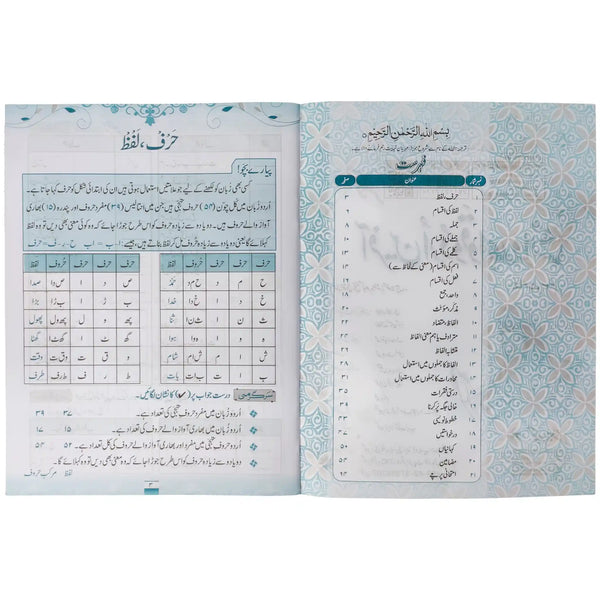 بِسْمِ اللهِ الرَّحْمٰنِ الرَّحِيْمِ
فہرست
نمبر شمار عنوان صفحہ
۱ حرف، لفظ ۳
۲ لفظ کی اقسام
۳ جملہ ۸
۴ جملے کی اقسام ۱۰
۵ کلمے کی اقسام
۶ اسم کی اقسام (معنی کے لحاظ سے)
۷ فعل کی اقسام
۸ واحد جمع
۹ مذکر مؤنث
۱۰ الفاظ متضاد
۱۱ مترادف یا ہم معنی الفاظ
۱۲ متشابہ الفاظ
۱۳ الفاظ کا جملوں میں استعمال
۱۴ محاورات کا جملوں میں استعمال
۱۵ درستی فقرات
۱۶ خالی جگہ پُر کرنا
۱۷ خطوط نویسی
۱۸ درخواستیں
۱۹ کہانیاں
۲۰ مضامین ۵۴
۲۱ امتحانی پرچے ۹۳
حَرْف، لَفْظ
پیارے بچو!
کسی بھی زبان کو لکھنے کے لیے جو علامتیں استعمال ہوتی ہیں ان کی ابتدائی شکل کو حرف کہا جاتا ہے۔
اُردو زبان میں کل چون (۵۴) حروفِ تہجی ہیں جن میں انتالیس (۳۹) مفرد حروف اور پندرہ (۱۵) بھاری
آواز والے حروف ہیں۔ دو یا دو سے زیادہ حروف کو اس طرح جوڑا جائے کہ وہ کوئی معنی بھی دیں تو وہ لفظ
کہلائے گا یعنی دو یا دو سے زیادہ حروف مل کر لفظ بناتے ہیں جیسے:
حرف حرف حرف حروف لفظ
ح م د ح م د حَمْد
خ د ا خ د ا خدا
ث ن ا ث ن ا ثنا
و ف ا و ف ا وفا
ش ا م ش ا م شام
ب ا ت ب ا ت بات
حرف حرف حرف حروف لفظ
ص د ا ص د ا صدا
ب ڑ ا ب ڑ ا بڑا
پھ و ل پھ و ل پھول
گھ ٹ ا گھ ٹ ا گھٹا
و ق ت و ق ت وقت
ط ر ف ط ر ف طرف
سرگرمی درست جواب پر (✓) کا نشان لگائیں۔
اُردو زبان میں مفرد حروفِ تہجی کی تعداد ہے۔ ۳۷ ۳۹
اُردو زبان میں بھاری آواز والے حروف کی تعداد ہے۔ ۱۵ ۱۷
اُردو حروفِ تہجی میں مفرد اور بھاری آواز والے حروف کی کل تعداد ہے۔ ۵۲ ۵۴
دو یا دو سے زیادہ حروف کو اس طرح جوڑا جائے کہ وہ معنی بھی دیں تو وہ کہلائے گا۔
لفظ مرکب حروف
۳